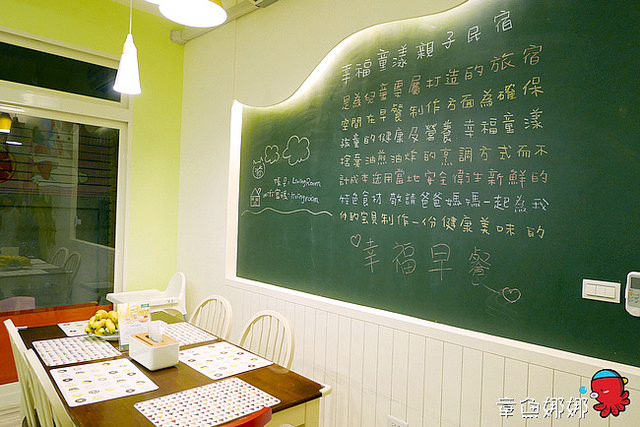 幸福童漾親子民宿
是為兒童專屬打造的旅宿
空間在早餐制作方面為確保
孩童的健康及營養 幸福童漾
捨棄油煎油炸的烹調方式而不
計成本选用當地安全衛生新鮮的
特色食材 敬請爸爸媽媽一起為我
們的宝貝制作一份健康美味的
幸福早餐
帳号:LivingRoom
密碼:livingroom
章魚娜娜